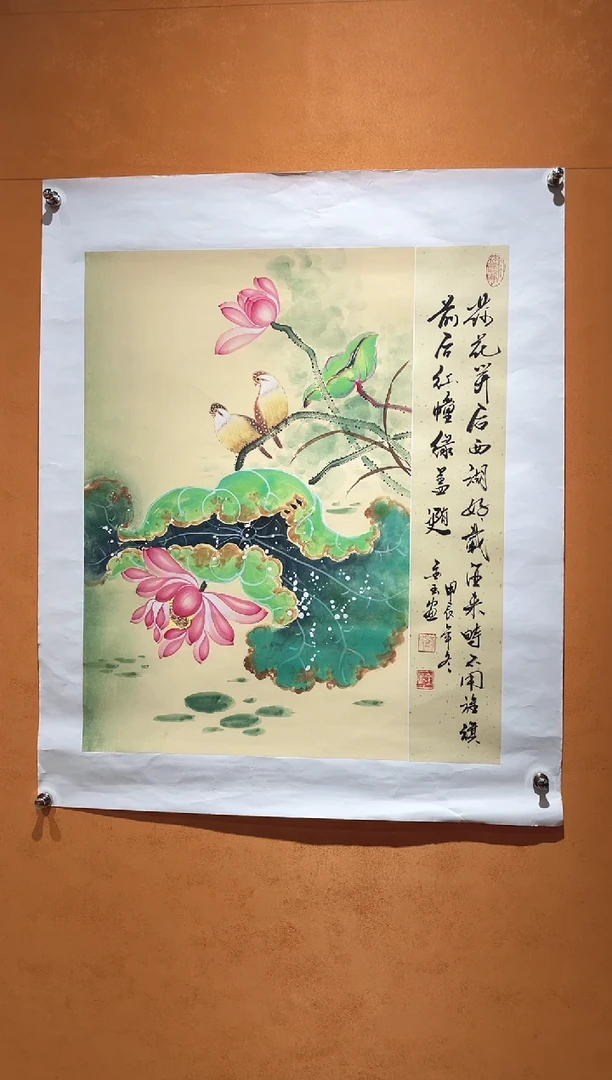 荷花开后西湖好載酒来時不用旌旗
前后红幢緑盖随
甲辰年冬